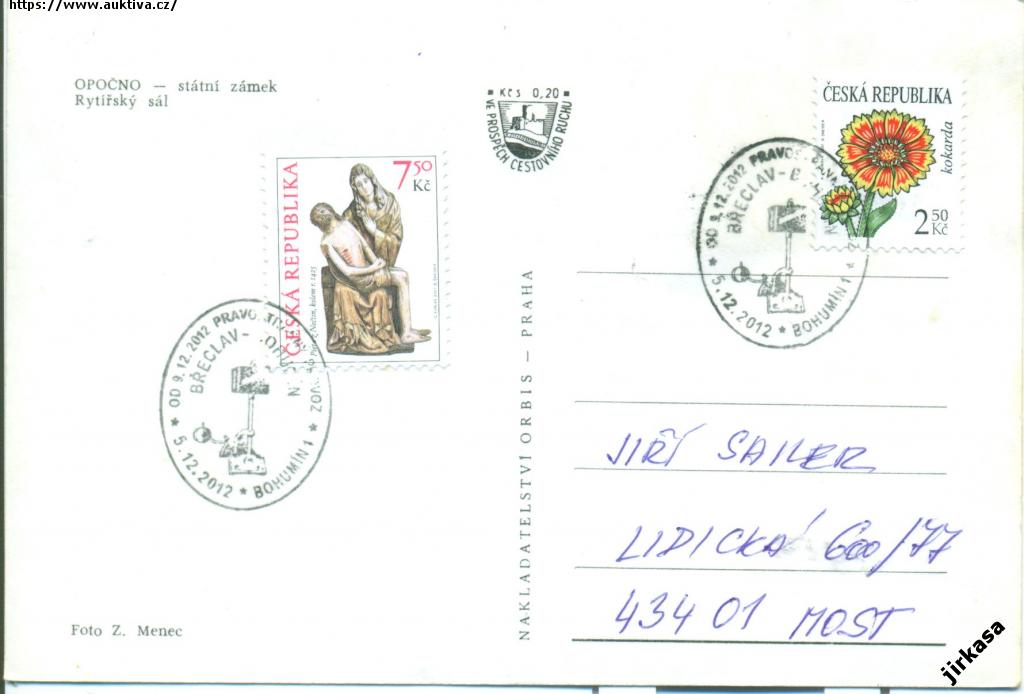 https://www.auktiva.cz/
OPOČNO — státní zámek
Rytířský sál
Kčs 0,20
VE PROSPĚCH CESTOVNÍHO RUCHU
ČESKÁ REPUBLIKA
kokarda
2 50
Kč
* OD 9.12.2012 PRAVO
BŘECLAV-
5.12.2012 * BOHUMÍN 1 *
7 50
Kč
ČESKÁ REPUBLIKA
kolem r. 1425
* OD 9.12.2012 PRAVO
BŘECLAV-
VOZ
5.12.2012 * BOHUMÍN 1 *
NAKLADATELSTVÍ ORBIS — PRAHA
JIŘÍ SAILER
LIDICKÁ 600/77
434 01 MOST
Foto Z. Menec
jirkasa